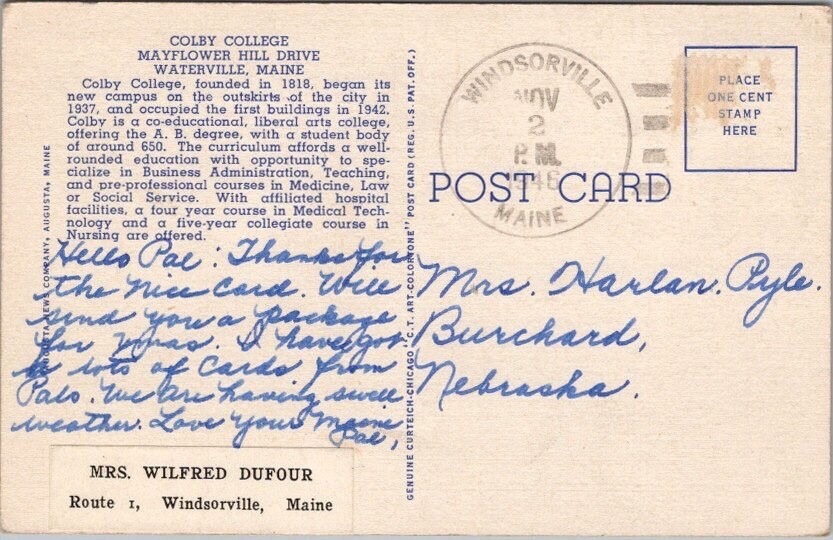 COLBY COLLEGE
MAYFLOWER HILL DRIVE
WATERVILLE, MAINE
Colby College, founded in 1818, began its
new campus on the outskirts of the city in
1937, and occupied the first buildings in 1942.
Colby is a co-educational, liberal arts college,
offering the A. B. degree, with a student body
of around 650. The curriculum affords a well-
rounded education with opportunity to spe-
cialize in Business Administration, Teaching,
and pre-professional courses in Medicine, Law
or Social Service. With affiliated hospital
facilities, a four year course in Medical Tech-
nology and a five-year collegiate course in
Nursing are offered.
Hello Pal: Thanks for
the nice card. Will
send you a package
for Xmas. I have got
lots of cards from
Pals. We are having swell
weather. Love Your Maine
Pal,
MRS. WILFRED DUFOUR
Route 1, Windsorville, Maine
AUGUSTA NEWS COMPANY, AUGUSTA, MAINE
GENUINE CURTEICH-CHICAGO "C.T. ART-COLORTONE" POST CARD (REG. U.S. PAT. OFF.)
WINDSORVILLE
NOV
2
P.M.
1946
MAINE
POST CARD
PLACE
ONE CENT
STAMP
HERE
Mrs. Harlan Pyle.
Burchard,
Nebraska.